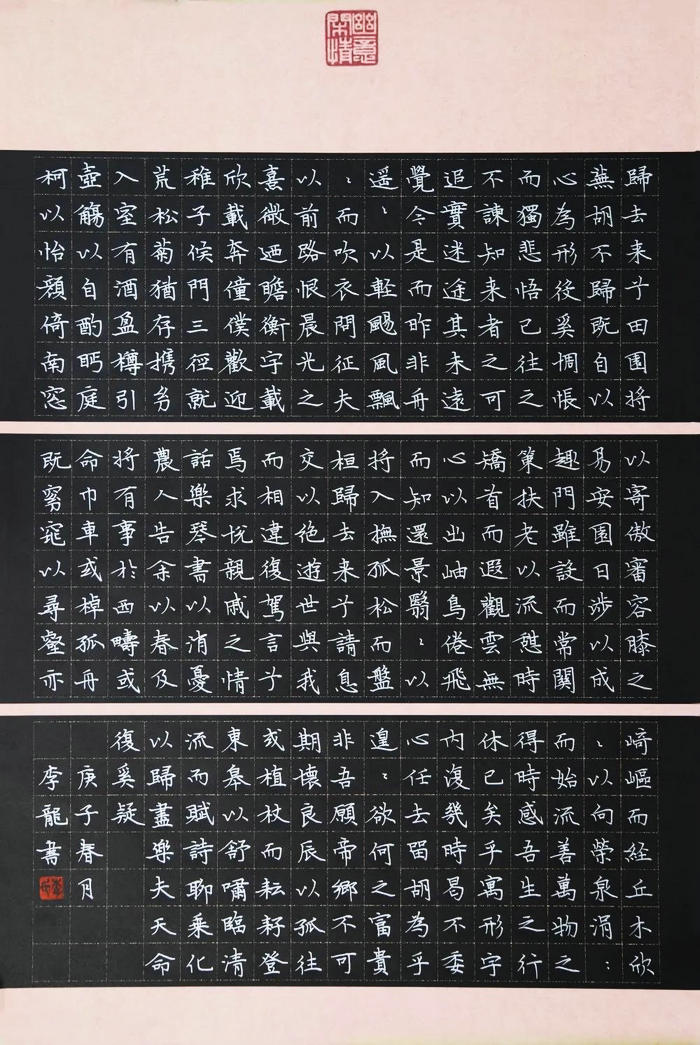 幽意
閑情
歸去来兮田園將
蕪胡不歸既自以
心為形役奚惆悵
而獨悲悟已往之
不諫知来者之可
追實迷途其未遠
覺今是而昨非舟
遥〻以輕颺風飄
〻而吹衣問征夫
以前路恨晨光之
熹微迺瞻衡宇載
欣載奔僮僕歡迎
稚子候門三徑就
荒松菊猶存携幼
入室有酒盈樽引
壺觴以自酌眄庭
柯以怡顔倚南窓
以寄傲審容膝之
易安園日涉以成
趣門雖設而常関
策扶老以流憩時
矯首而遐觀雲無
心以出岫鳥倦飛
而知還景翳〻以
將入撫孤松而盤
桓歸去来兮請息
交以絶遊世與我
而相違復駕言兮
焉求悦親戚之情
話樂琴書以消憂
農人告余以春及
將有事於西疇或
命巾車或棹孤舟
既窈窕以尋壑亦
崎嶇而経丘木欣
〻以向榮泉涓〻
而始流善萬物之
得時感吾生之行
休已矣乎寓形宇
内復幾時曷不委
心任去留胡為乎
遑〻欲何之富貴
非吾願帝鄉不可
期懷良辰以孤往
或植杖而耘耔登
東皋以舒嘯臨清
流而賦詩聊乘化
以歸盡樂夫天命
復奚疑
庚子春月
李龍書